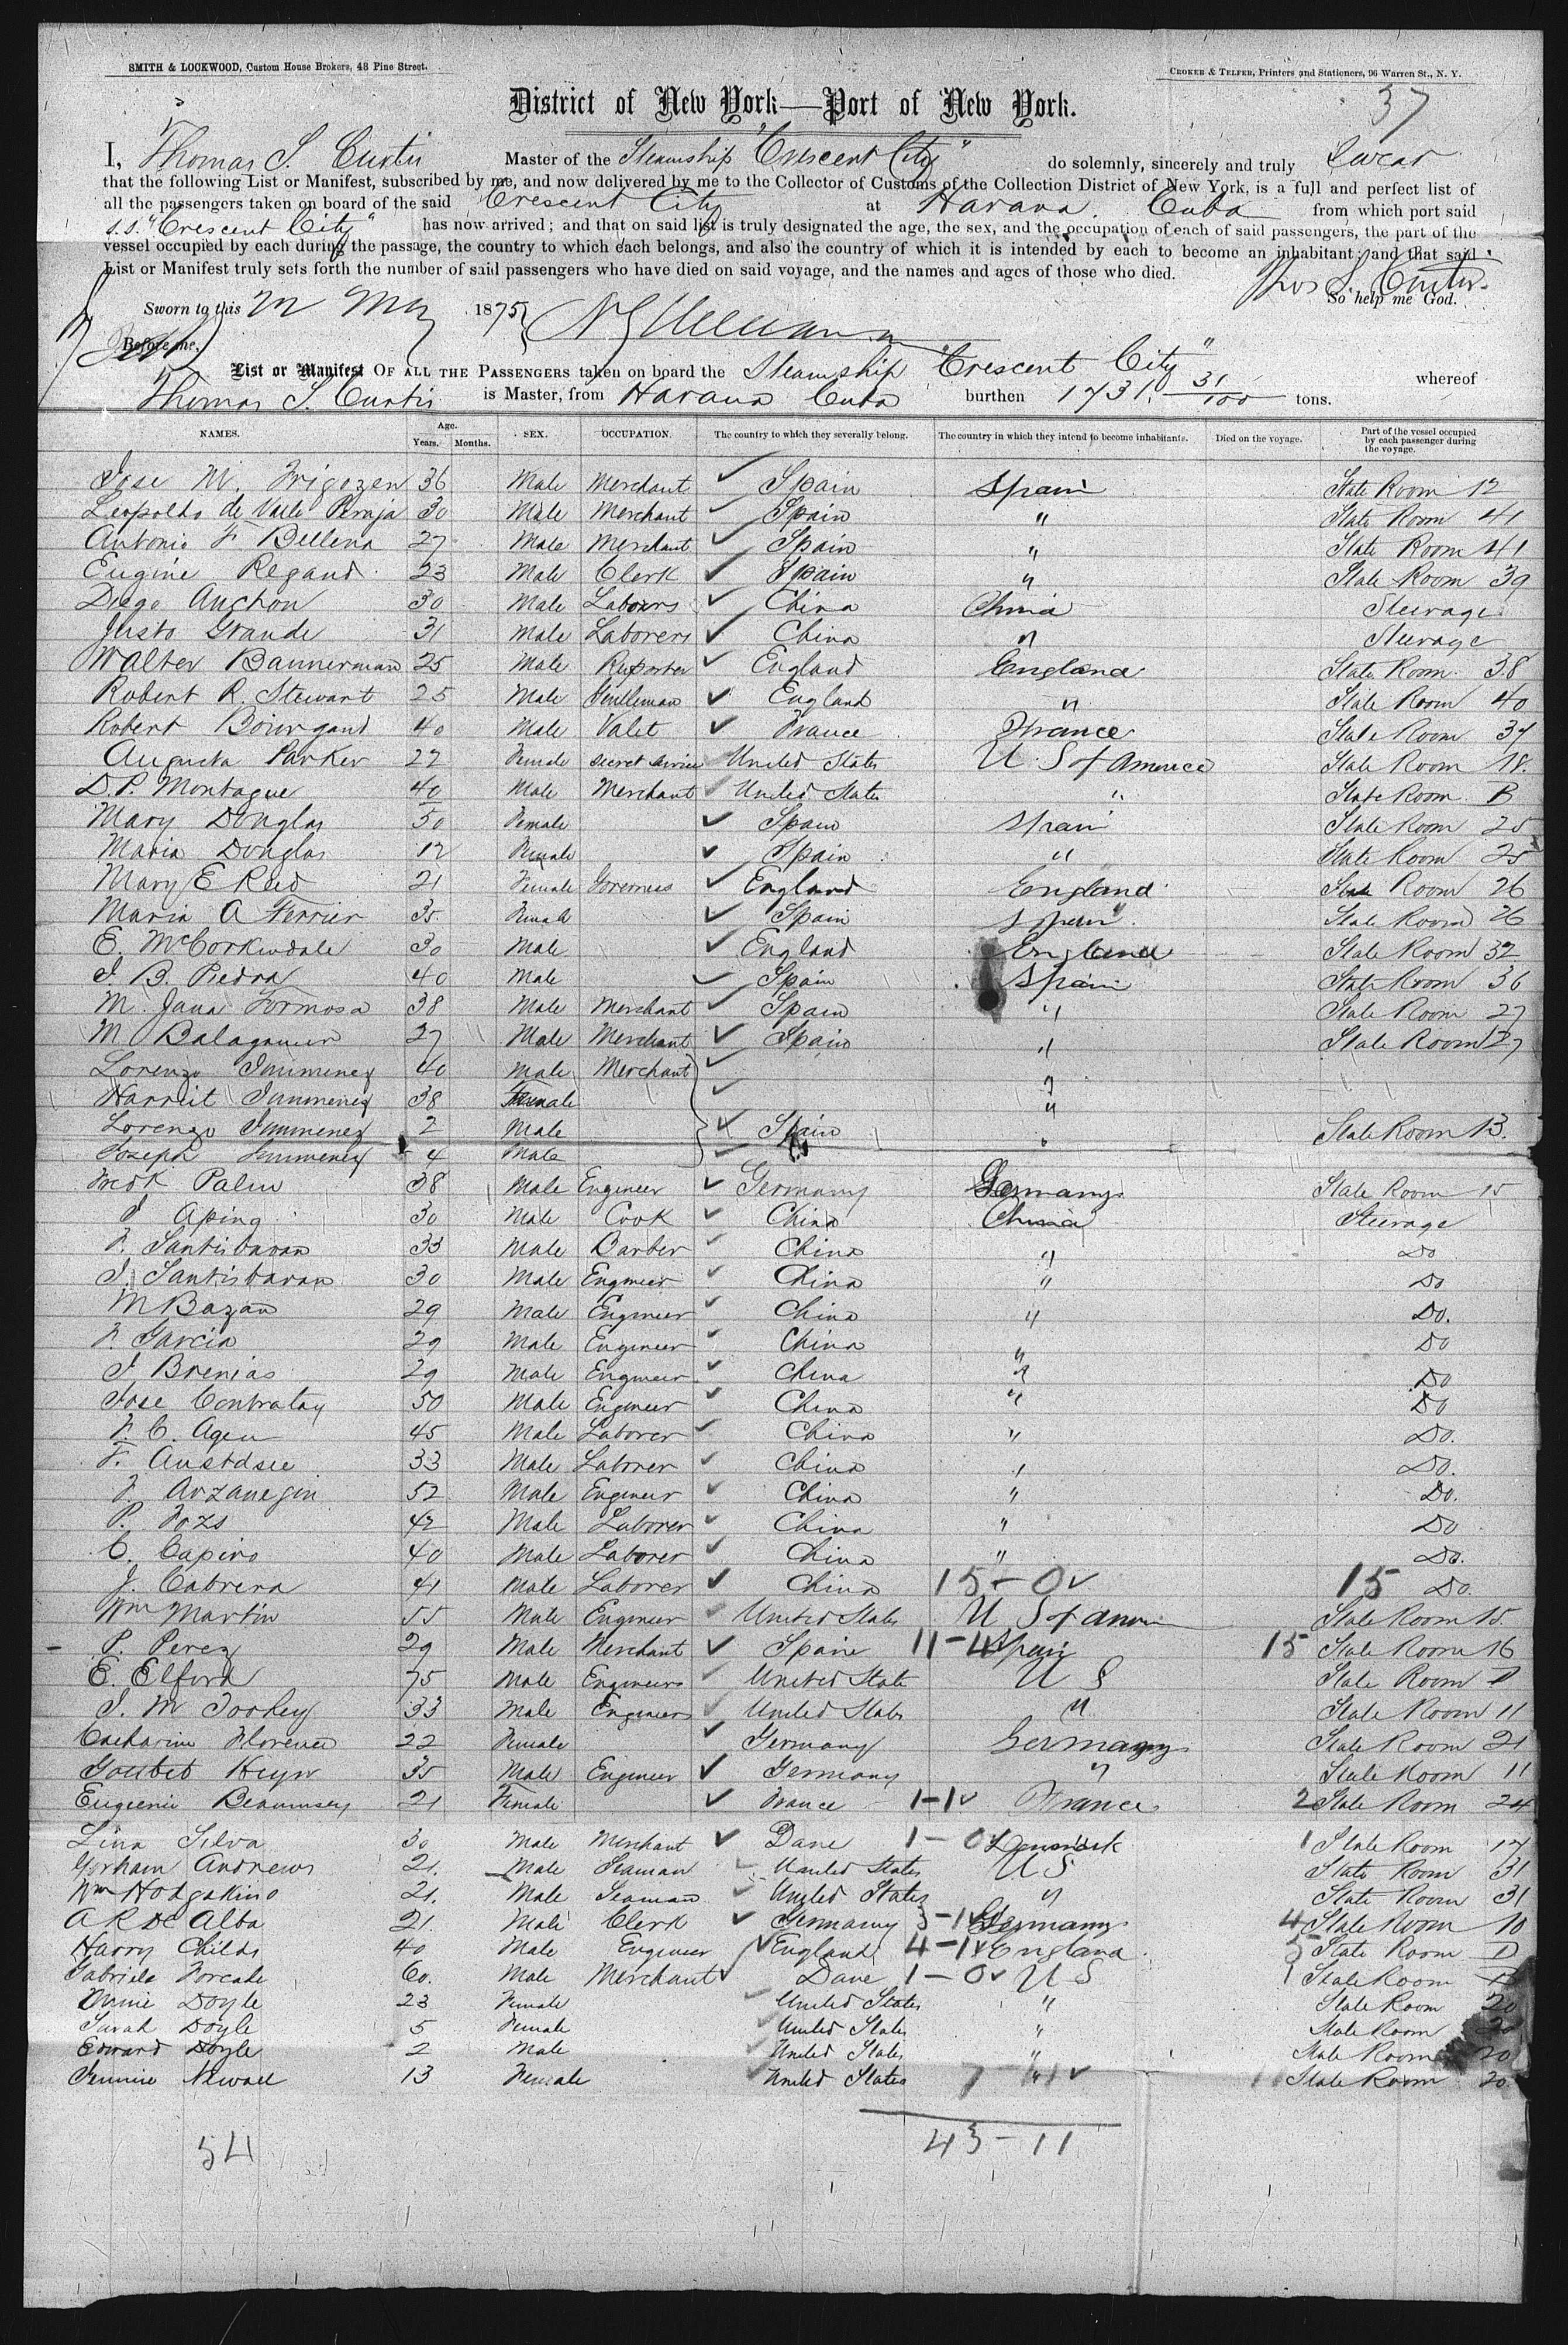 SMITH & LOCKWOOD, Custom House Brokers, 48 Pine Street.
CROKER & TELFER, Printers and Stationers, 96 Warren St., N. Y.
37
District of New York—Port of New York.
I, Thomas S. Curtis Master of the Steamship "Crescent City" do solemnly, sincerely and truly swear
that the following List or Manifest, subscribed by me, and now delivered by me to the Collector of Customs of the Collection District of New York, is a full and perfect list of
all the passengers taken on board of the said Crescent City at Havana, Cuba from which port said
s.s. "Crescent City" has now arrived; and that on said list is truly designated the age, the sex, and the occupation of each of said passengers, the part of the
vessel occupied by each during the passage, the country to which each belongs, and also the country of which it is intended by each to become an inhabitant; and that said
List or Manifest truly sets forth the number of said passengers who have died on said voyage, and the names and ages of those who died.
Thos S. Curtis
So help me God.
Sworn to this 22 May 1875
Before me,
List or Manifest OF ALL THE PASSENGERS taken on board the Steamship "Crescent City" whereof
Thomas S. Curtis is Master, from Havana Cuba burthen 1731. 31/100 tons.
NAMES. Age. Years. Months. SEX. OCCUPATION. The country to which they severally belong. The country in which they intend to become inhabitants. Died on the voyage. Part of the vessel occupied by each passenger during the voyage.
Jose M. Frigozen 36 Male Merchant Spain Spain State Room 12
Leopoldo de Valle Peraja 30 Male Merchant Spain " State Room 41
Antonio F. Bellena 27 Male Merchant Spain " State Room 41
Eugine Regand 23 Male Clerk Spain " State Room 39
Diego Anchon 30 Male Labours China China Steerage
Justo Grande 31 Male Laborers China " Steerage
Walter Bannerman 25 Male Reporter England England State Room 38
Robert R. Stewart 25 Male Gentleman England " State Room 40
Robert Bourgand 40 Male Valet France France State Room 37
Augusta Parker 27 Female Secret Service United States U. S of America State Room 18.
D. P. Montague 40 Male Merchant United States " State Room B
Mary Douglas 50 Female Spain Spain State Room 25
Maria Douglas 12 Female Spain " State Room 25
Mary E Reed 21 Female Governess England England State Room 26
Maria A Ferrier 35. Female Spain Spain State Room 26
E. McCorkindale 30 Male England England State Room 32
J. B. Piedra 40 Male Spain Spain State Room 36
M. Jana Formosa 38 Male Merchant Spain " State Room 27
M Balaguer 27 Male Merchant Spain " State Room 27
Lorenzo Jimmenez 40 Male Merchant "
Harriet Jimmenez 38 Female "
Lorenzo Jimmenez 2 Male Spain " State Room 13.
Joseph Jimmenez 4 Male
Fredk Palm 38 Male Engineer Germany Germany State Room 15
J Aping 30 Male Cook China China Steerage
F. Santisbaran 33 Male Barber China " Do
J. Santisbaran 30 Male Engineer China " Do
M Bazan 29 Male Engineer China " Do.
F. Garcia 29 Male Engineer China " Do
J Brenias 29 Male Engineer China " Do
Jose Contratay 50 Male Engineer China " Do
F. C. Agen 45 Male Laborer China " Do.
F. Austdsee 33 Male Laborer China " Do.
F Arzanegin 52 Male Engineer China " Do.
P. Fozs 42 Male Laborer China " Do
C. Capiro 40 Male Laborer China " Do.
J. Cabrera 41 Male Laborer China 15-0 15 Do
Wm Martin 55 Male Engineer United States U S of Amer State Room 15.
P. Perez 29 Male Merchant Spain 11-4 Spain 15 State Room 16
E. Elford 75 Male Engineers United State U S State Room
J. M Tookey 33 Male Engineers United States " State Room 11
Catharine Florence 22 Female Germany Germany State Room 21
Gottleb Heyn 35 Male Engineer Germany " State Room 11
Eugenie Beaumsey 21 Female France 1-1 France 2 State Room 24
Lina Silva 30 Male Merchant Dane 1-0 Denmark 1 State Room 17
Gorham Andrews 21. Male Seaman United States U S State Room 31
Wm Hodgskins 21. Male Seaman United States " State Room 31
A R De Alba 21. Male Clerk Germany 3-1 Germany 4 State Room 10
Harry Childs 40 Male Engineer England 4-1 England 5 State Room D
Gabriela Forcade 60. Male Merchant Dane 1-0 U S 1 State Room
Annie Doyle 23 Female United States " State Room 20
Sarah Doyle 5 Female United States " State Room 20
Edward Doyle 2 Male United States " State Room 20
Jennie Newall 13 Female United States 7 " State Room 20.
43-11
54